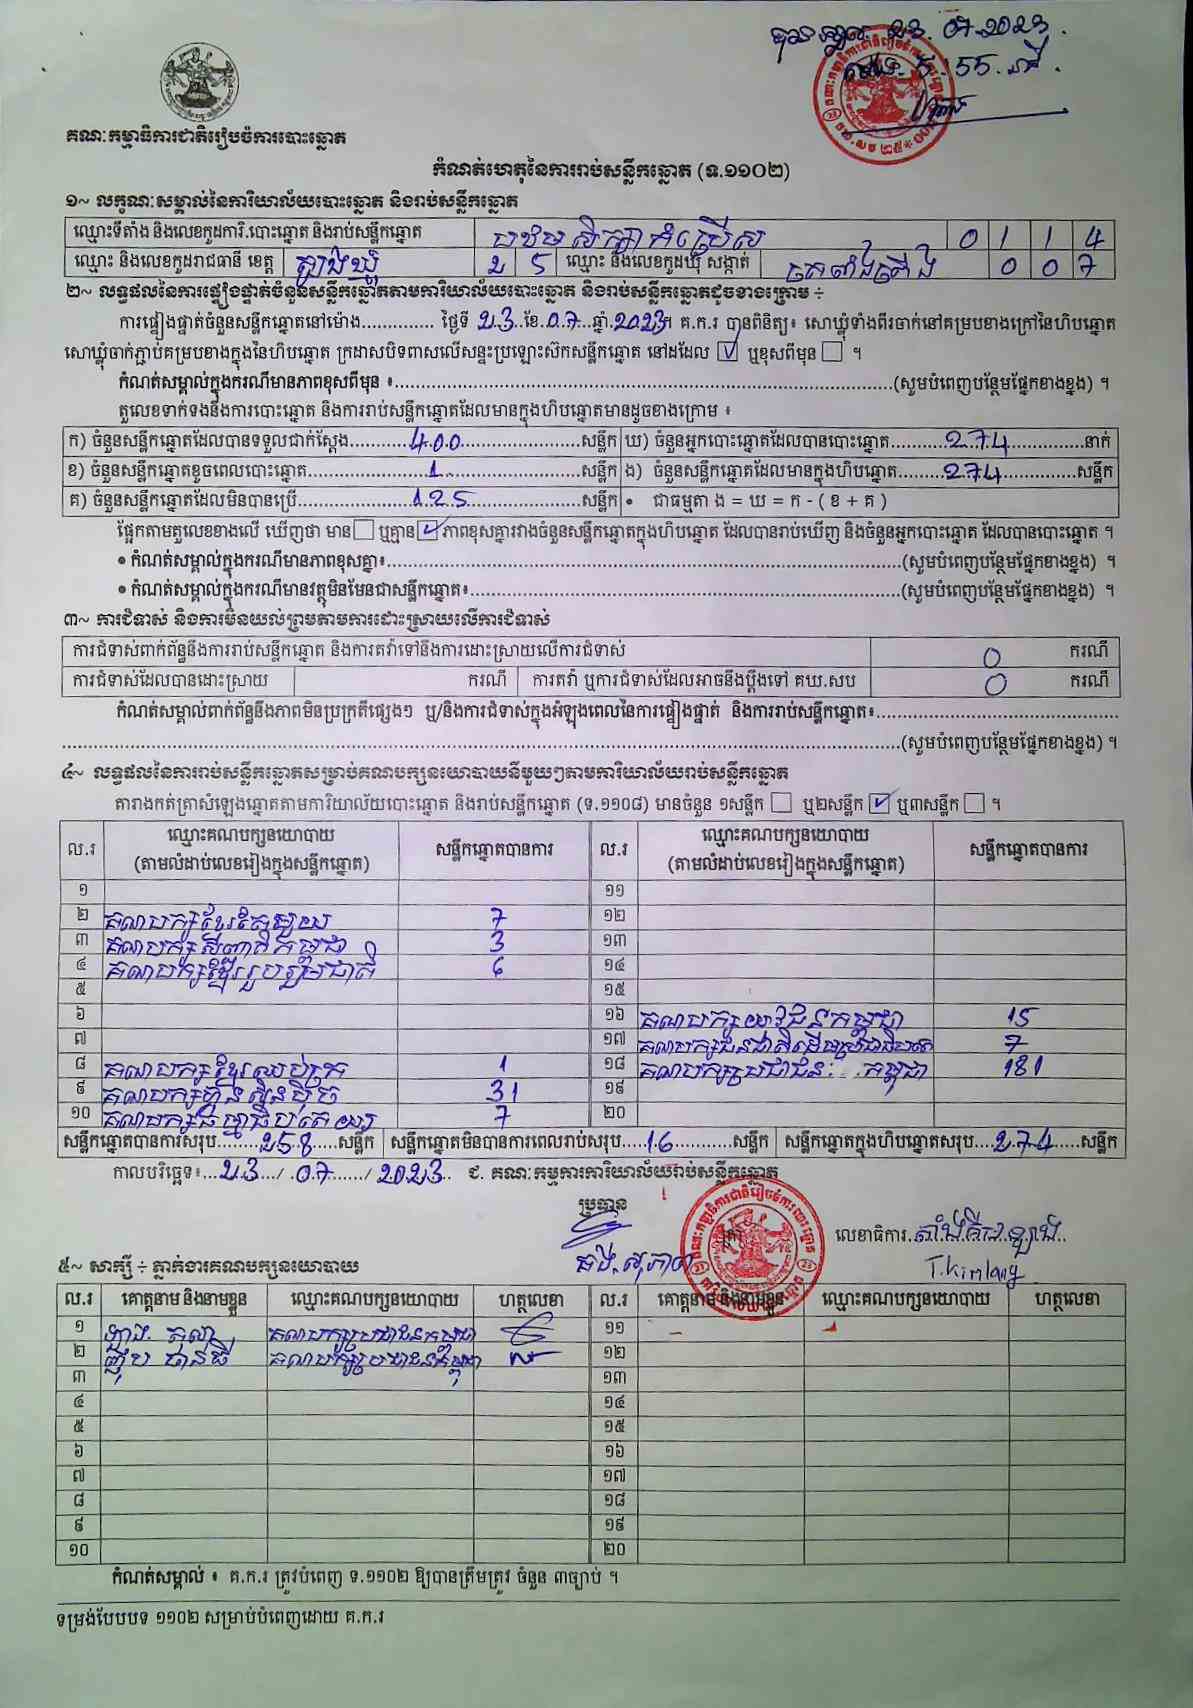 23.07.2023
5:55
គណៈកម្មាធិការជាតិរៀបចំការបោះឆ្នោត
កំណត់ហេតុនៃការរាប់សន្លឹកឆ្នោត (ទ.១១០២)
១~ លក្ខណៈសម្គាល់នៃការិយាល័យបោះឆ្នោត និងរាប់សន្លឹកឆ្នោត
ឈ្មោះទីតាំង និងលេខកូដការិ.បោះឆ្នោត និងរាប់សន្លឹកឆ្នោត បឋមសិក្សាកំប្រើស 0 1 1 4
ឈ្មោះ និងលេខកូដរាជធានី ខេត្ត ត្បូងឃ្មុំ 2 5 ឈ្មោះ និងលេខកូដឃុំ សង្កាត់ 0 0 7
២~ លទ្ធផលនៃការផ្ទៀងផ្ទាត់ចំនួនសន្លឹកឆ្នោតតាមការិយាល័យបោះឆ្នោត និងរាប់សន្លឹកឆ្នោតដូចខាងក្រោម ÷
ការផ្ទៀងផ្ទាត់ចំនួនសន្លឹកឆ្នោតនៅម៉ោង.............. ថ្ងៃទី 23 ខែ 07 ឆ្នាំ 2023។ គ.ក.រ បានពិនិត្យ៖ សោឃ្លុំទាំងពីរចាក់នៅគម្របខាងក្រៅនៃហិបឆ្នោត
សោឃ្លុំចាក់ភ្ជាប់គម្របខាងក្នុងនៃហិបឆ្នោត ក្រដាសបិទពាសលើសន្ទះប្រឡោះស៊កសន្លឹកឆ្នោត នៅដដែល ☑ ឬខុសពីមុន ☐ ។
កំណត់សម្គាល់ក្នុងករណីមានភាពខុសពីមុន ៖..............(សូមបំពេញបន្ថែមផ្នែកខាងខ្នង) ។
តួលេខទាក់ទងនឹងការបោះឆ្នោត និងការរាប់សន្លឹកឆ្នោតដែលមានក្នុងហិបឆ្នោតមានដូចខាងក្រោម ៖
ក) ចំនួនសន្លឹកឆ្នោតដែលបានទទួលជាក់ស្តែង 400 សន្លឹក ឃ) ចំនួនអ្នកបោះឆ្នោតដែលបានបោះឆ្នោត 274 នាក់
ខ) ចំនួនសន្លឹកឆ្នោតខូចពេលបោះឆ្នោត 1 សន្លឹក ង) ចំនួនសន្លឹកឆ្នោតដែលមានក្នុងហិបឆ្នោត 274 សន្លឹក
គ) ចំនួនសន្លឹកឆ្នោតដែលមិនបានប្រើ 125 សន្លឹក • ជាធម្មតា ង = ឃ = ក - ( ខ + គ )
ផ្អែកតាមតួលេខខាងលើ ឃើញថា មាន ☐ ឬគ្មាន ☑ ភាពខុសគ្នារវាងចំនួនសន្លឹកឆ្នោតក្នុងហិបឆ្នោត ដែលបានរាប់ឃើញ និងចំនួនអ្នកបោះឆ្នោត ដែលបានបោះឆ្នោត ។
• កំណត់សម្គាល់ក្នុងករណីមានភាពខុសគ្នា៖..............(សូមបំពេញបន្ថែមផ្នែកខាងខ្នង) ។
• កំណត់សម្គាល់ក្នុងករណីមានវត្ថុមិនមែនជាសន្លឹកឆ្នោត៖..............(សូមបំពេញបន្ថែមផ្នែកខាងខ្នង) ។
៣~ ការជំទាស់ និងការមិនយល់ព្រមតាមការដោះស្រាយលើការជំទាស់
ការជំទាស់ពាក់ព័ន្ធនឹងការរាប់សន្លឹកឆ្នោត និងការតវ៉ាទៅនឹងការដោះស្រាយលើការជំទាស់ 0 ករណី
ការជំទាស់ដែលបានដោះស្រាយ ករណី ការតវ៉ា ឬការជំទាស់ដែលអាចនឹងប្តឹងទៅ គឃ.សប 0 ករណី
កំណត់សម្គាល់ពាក់ព័ន្ធនឹងភាពមិនប្រក្រតីផ្សេងៗ ឬ/និងការជំទាស់ក្នុងអំឡុងពេលនៃការផ្ទៀងផ្ទាត់ និងការរាប់សន្លឹកឆ្នោត៖..............
..............(សូមបំពេញបន្ថែមផ្នែកខាងខ្នង) ។
៤~ លទ្ធផលនៃការរាប់សន្លឹកឆ្នោតសម្រាប់គណបក្សនយោបាយនីមួយៗតាមការិយាល័យរាប់សន្លឹកឆ្នោត
តារាងកត់ត្រាសំឡេងឆ្នោតតាមការិយាល័យបោះឆ្នោត និងរាប់សន្លឹកឆ្នោត (ទ.១១០៨) មានចំនួន ១សន្លឹក ☐ ឬ២សន្លឹក ☑ ឬ៣សន្លឹក ☐ ។
ល.រ ឈ្មោះគណបក្សនយោបាយ (តាមលំដាប់លេខរៀងក្នុងសន្លឹកឆ្នោត) សន្លឹកឆ្នោតបានការ ល.រ ឈ្មោះគណបក្សនយោបាយ (តាមលំដាប់លេខរៀងក្នុងសន្លឹកឆ្នោត) សន្លឹកឆ្នោតបានការ
១ ១១
២ គណបក្សខ្មែរតែមួយ 7 ១២
៣ គណបក្សស៊ីញាតិកម្ពុជា 3 ១៣
៤ គណបក្សខ្មែររួបរួមជាតិ 6 ១៤
៥ ១៥
៦ ១៦ គណបក្សយុវជនកម្ពុជា 15
៧ ១៧ គណបក្សជនជាតិដើមប្រជាធិបតេ 7
៨ គណបក្សខ្មែរឈប់ក្រ 1 ១៨ គណបក្សប្រជាជនកម្ពុជា 181
៩ គណបក្សហ្វ៊ុនស៊ិនប៉ិច 31 ១៩
១០ គណបក្សធម្មាធិបតេយ្យ 7 ២០
សន្លឹកឆ្នោតបានការសរុប 258 សន្លឹក សន្លឹកឆ្នោតមិនបានការពេលរាប់សរុប 16 សន្លឹក សន្លឹកឆ្នោតក្នុងហិបឆ្នោតសរុប 274 សន្លឹក
កាលបរិច្ឆេទ៖ 23 / 07 / 2023 ជ. គណៈកម្មការការិយាល័យរាប់សន្លឹកឆ្នោត
ប្រធាន
លេខាធិការ
T.Kimlang
៥~ សាក្សី ÷ ភ្នាក់ងារគណបក្សនយោបាយ
ល.រ គោត្តនាម និងនាមខ្លួន ឈ្មោះគណបក្សនយោបាយ ហត្ថលេខា ល.រ គោត្តនាម និងនាមខ្លួន ឈ្មោះគណបក្សនយោបាយ ហត្ថលេខា
១ គណបក្សប្រជាជនកម្ពុជា ១១
២ គណបក្សប្រជាជនកម្ពុជា ១២
៣ ១៣
៤ ១៤
៥ ១៥
៦ ១៦
៧ ១៧
៨ ១៨
៩ ១៩
១០ ២០
កំណត់សម្គាល់ ៖ គ.ក.រ ត្រូវបំពេញ ទ.១១០២ ឱ្យបានត្រឹមត្រូវ ចំនួន ៣ច្បាប់ ។
ទម្រង់បែបបទ ១១០២ សម្រាប់បំពេញដោយ គ.ក.រ